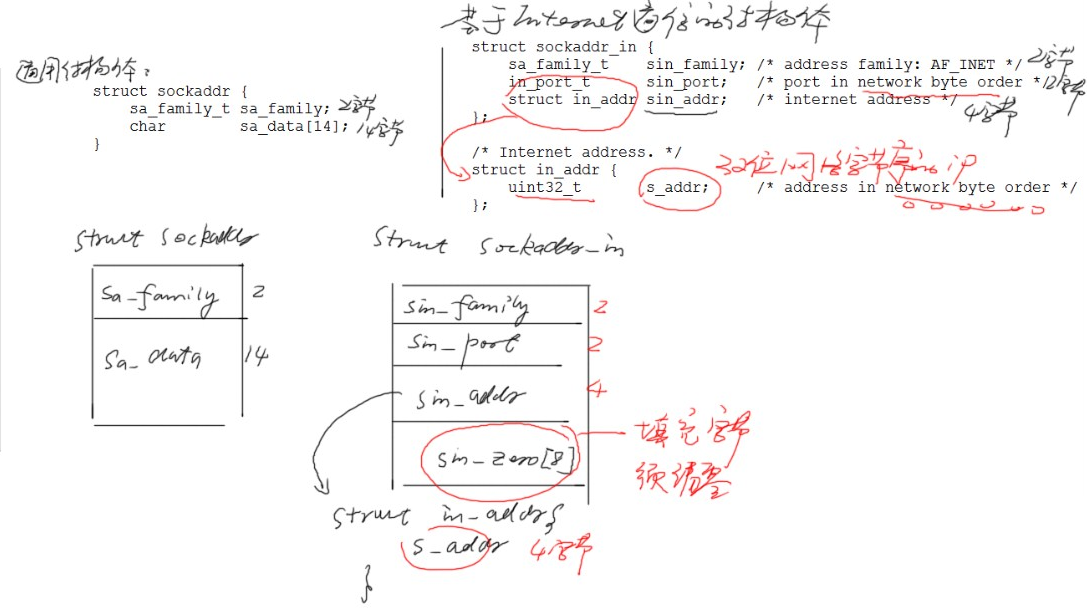 通用结构体:
struct sockaddr {
sa_family_t sa_family; 2字节
char sa_data[14]; 14字节
}
基于Internet通信的结构体
struct sockaddr_in {
sa_family_t sin_family; /* address family: AF_INET */ 2字节
in_port_t sin_port; /* port in network byte order */ 2字节
struct in_addr sin_addr; /* internet address */ 4字节
};
/* Internet address. */
struct in_addr {
uint32_t s_addr; /* address in network byte order */
};
32位网络字节序的IP
struct sockaddr
sa_family 2
sa_data 14
struct sockaddr_in
sin_family 2
sin_port 2
sin_addr 4
sin_zero[8]
填充字节
须清零
struct in_addr{
s_addr 4字节
}